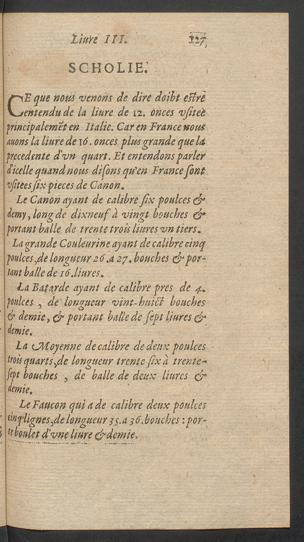 Liure III. 127
SCHOLIE.
CE que nous venons de dire doibt estre
entendu de la liure de 12. onces vsitee
principalemēt en Italie. Car en France nous
auons la liure de 16. onces plus grande que la
precedente d'vn quart. Et entendons parler
d'icelle quand nous disons qu'en France sont
vsitees six pieces de Canon.
Le Canon ayant de calibre six poulces &
demy, long de dixneuf à vingt bouches &
portant balle de trente trois liures vn tiers.
La grande Couleurine ayant de calibre cinq
poulces, de longueur 26. a 27. bouches & por-
tant balle de 16. liures.
La Batarde ayant de calibre pres de 4.
poulces, de longueur vint-huict bouches
& demie, & portant balle de sept liures &
demie.
La Moyenne de calibre de deux poulces
trois quarts, de longueur trente six à trente-
sept bouches, de balle de deux liures &
demie.
Le Faucon qui a de calibre deux poulces
cinq lignes, de longueur 35. a 36. bouches : por-
te boulet d'vne liure & demie.